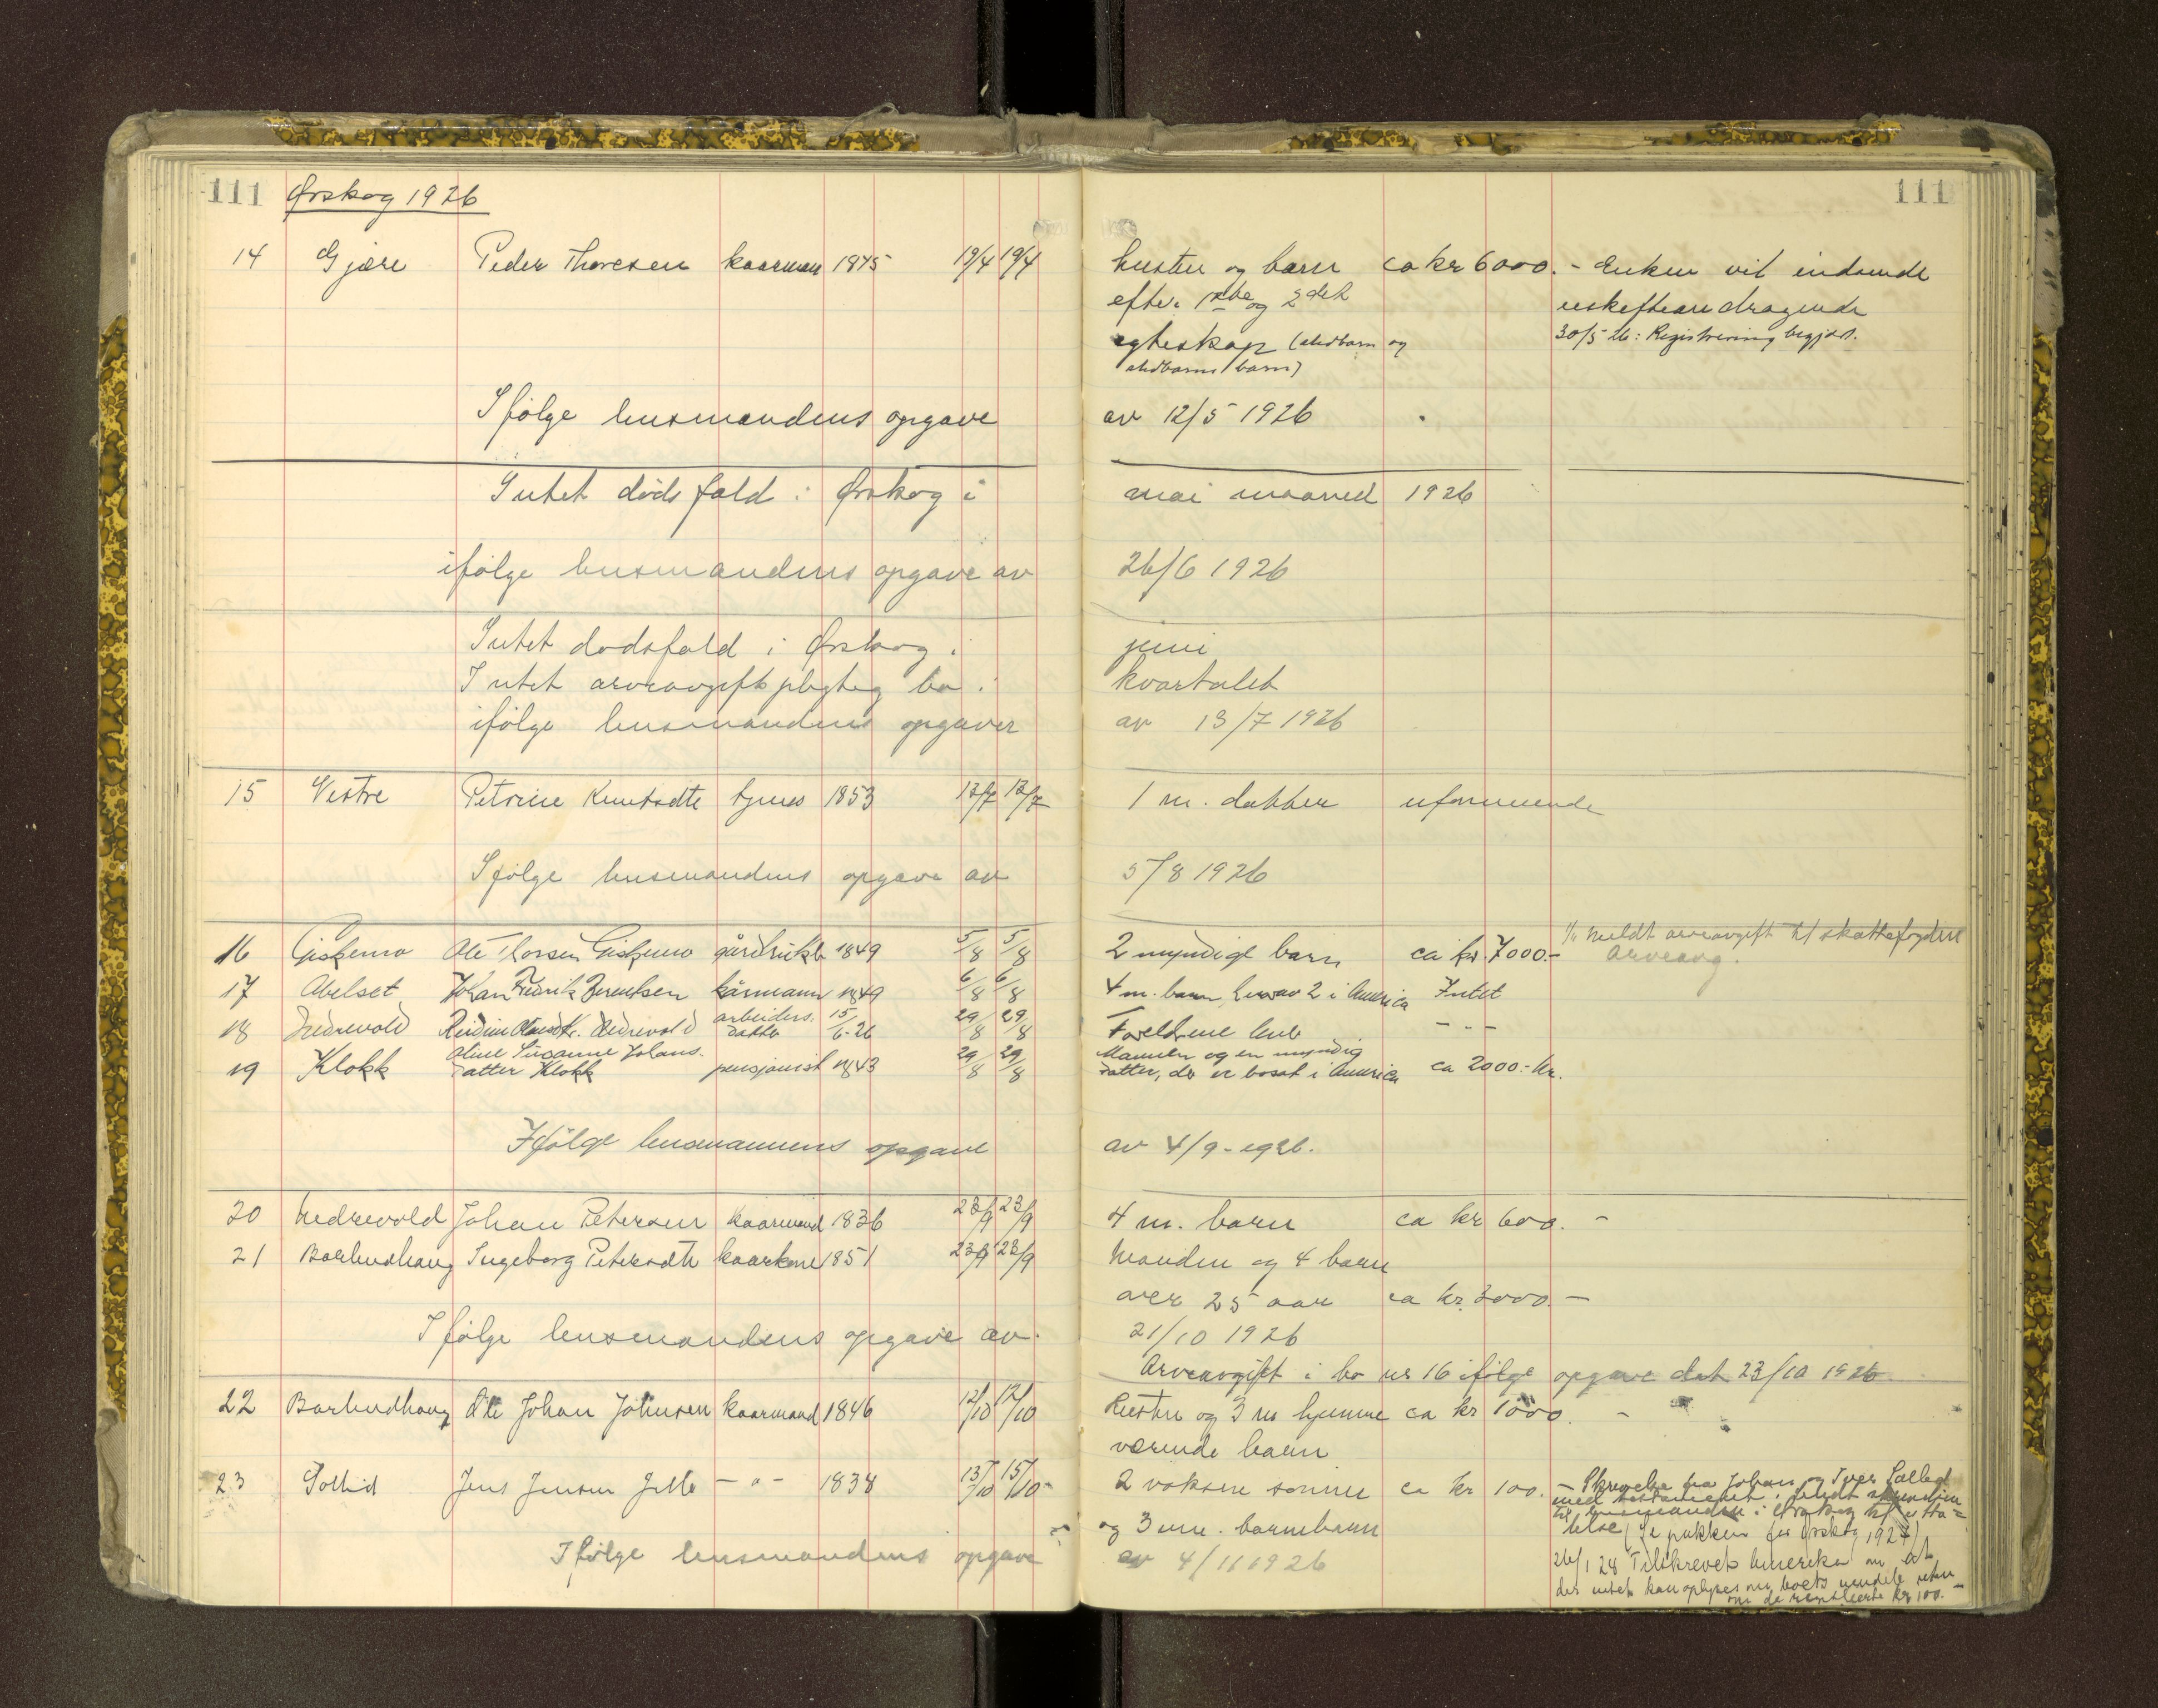 111 Ørskog 1926 111
14 Gjære Peder Thoresen kaarman 1845 19/4 19/4 hustru og barn ca kr 6000.- Enken vil indsende
efter 1ste og 2det uskifteandragende
egteskap (stedbarn og 30/5 26: Registrering begjært.
stedbarns barn)
Ifølge lensmandens opgave av 12/5 1926
Intet dødsfald i Ørskog i mai maaned 1926
ifølge lensmandens opgave av 26/6 1926
Intet dødsfald i Ørskog i juni
Intet arveavgiftspligtig bo i kvartalet
ifølge lensmandens opgaver av 13/7 1926
15 Vestre Petrine Knutsdtr tjenes 1853 12/7 12/7 1 m. datter uformuende
Ifølge lensmandens opgave av 5/8 1926
1/4 meldt arveavgift til skattefogden
16 Giskemo Ole Thorsen Giskemo gårdbruker 1849 5/8 5/8 2 myndige barn ca kr. 7000.- Arveavg.
17 Abelset Johan Fredrik Berentsen kårmann 1849 6/8 6/8 4 m. barn hvorav 2 i America Intet
18 Nedrevold Reidun Nedrevold arbeiders. datter 15/6-26 29/8 29/8 Foreldrene lever - - -
19 Klokk Oline Susanne Johans- datter Klokk pensjonist 1843 29/8 29/8 Mannen og en myndig
datter, der er bosat i America ca 2000.- kr.
Ifølge lensmannens opgave av 4/9-1926.
20 Nedrevold Johan Petersen kaarmand 1836 23/9 23/9 4 m. barn ca kr 600.-
21 Barlindhaug Ingeborg Petersdtr kaarkone 1851 23/9 23/9 Manden og 4 barn
over 25 aar ca kr. 3000.-
Ifølge lensmandens opgave av 21/10 1926
Arveavgift i bo nr 16 ifølge opgave dat 23/10 1926
22 Barlindhaug Ole Johan Johnsen kaarmand 1846 12/10 12/10 Hustru og 3 m hjemme ca kr 1000.-
værende barn
23 Sollid Jens Jensen - " - 1838 13/10 15/10 2 voksne sønner ca kr 100.- Skrivelse fra Johan og Iver
med testamentet
til lensmanden i Ørskog til utta=
og 3 um. barnebarn lelse (se pakken for Ørskog 1927)
Ifølge lensmandens opgave av 4/11 1926 26/1 28 Tilskrevet om at
der intet kan oplyses om boets
om de kr 100.-